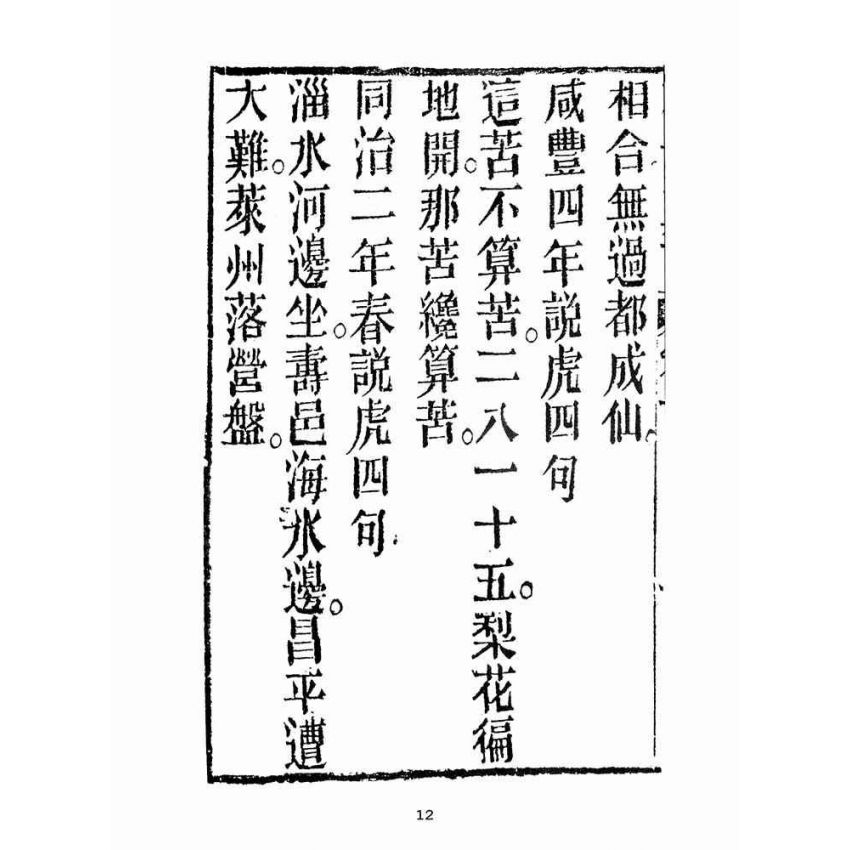 相合無過都成仙。
咸豐四年說虎四句
這苦不算苦。二八一十五。梨花徧
地開。那苦纔算苦。
同治二年春說虎四句
淄水河邊坐。壽邑海水邊。昌平遭
大難。萊州落營盤。
12